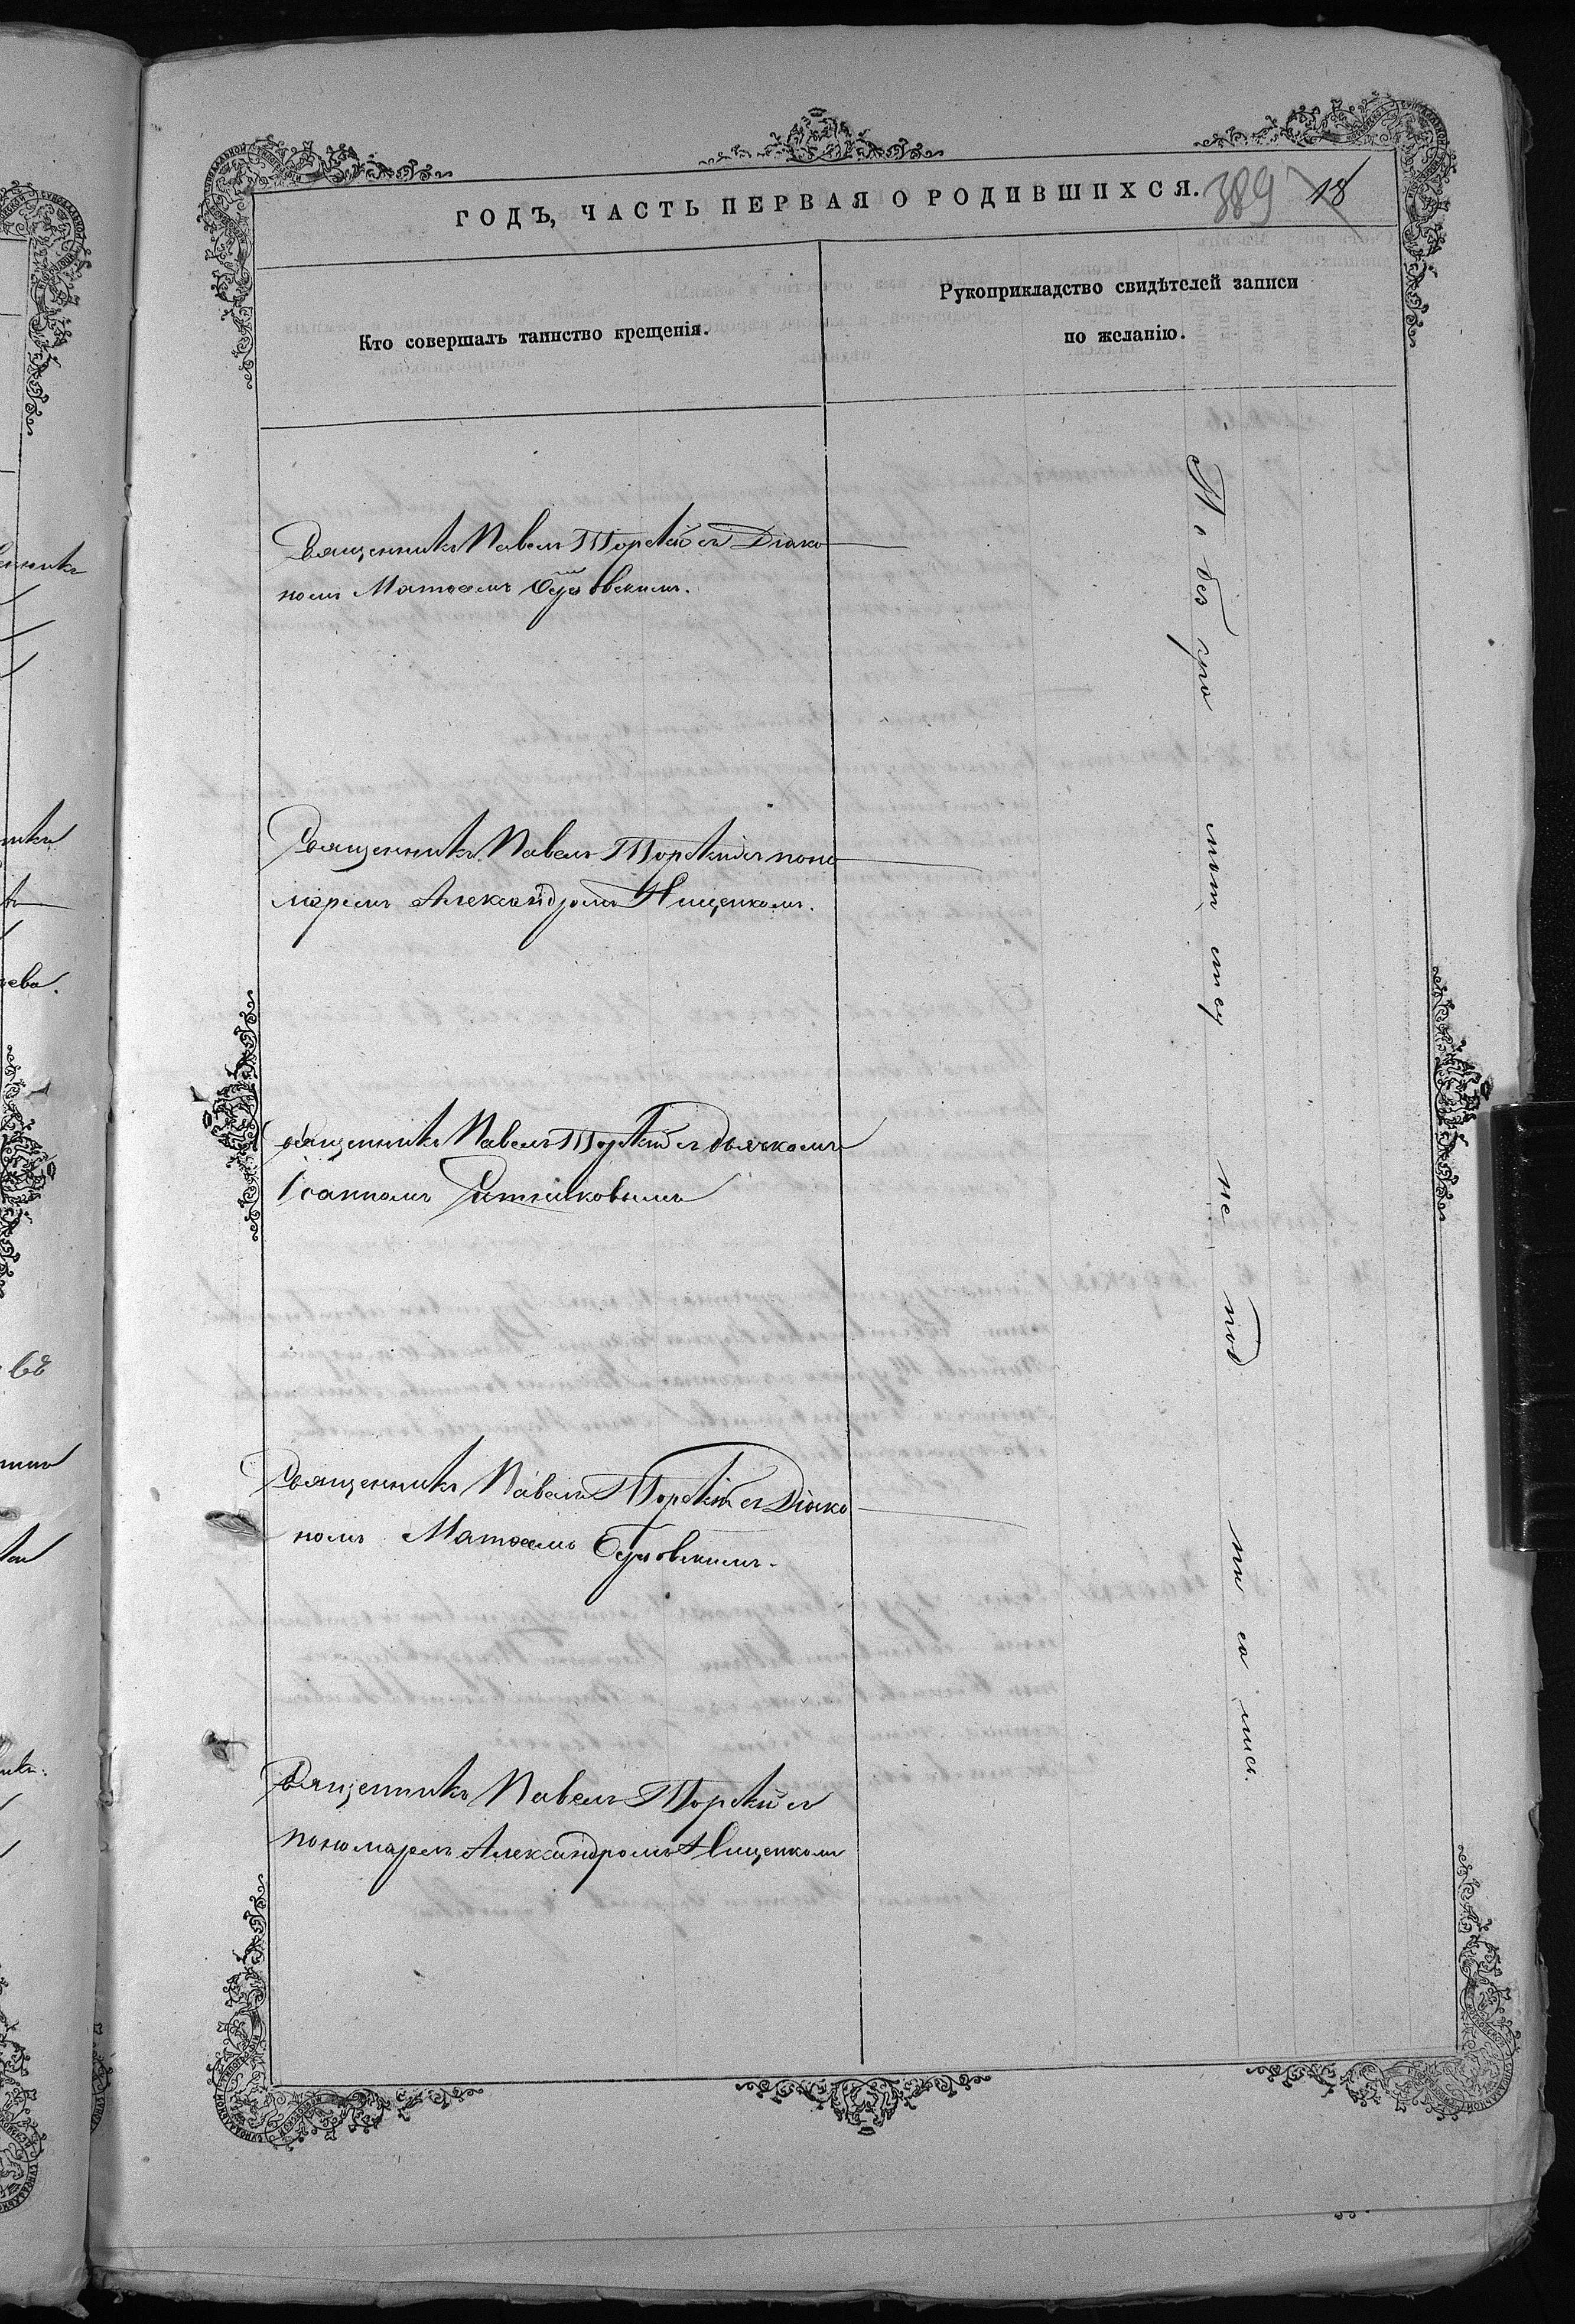 ГОДЪ, ЧАСТЬ ПЕРВАЯ О РОДИВШИХСЯ.
389 18
Кто совершалъ таинство крещенія.
Рукоприкладство свидѣтелей записи
по желанію.
Священникъ Павелъ Торскій съ Діако
номъ Матѳеемъ
Священникъ Павелъ Торскій съ поно
маремъ Александромъ Нищенкомъ.
Священникъ Павелъ Торскій съ дьячкомъ
Іоанномъ
Священникъ Павелъ Торскій съ Діако
номъ Матѳеемъ
Священникъ Павелъ Торскій съ
пономаремъ Александромъ Нищенкомъ
По без гра мот ству не под пи са лись.